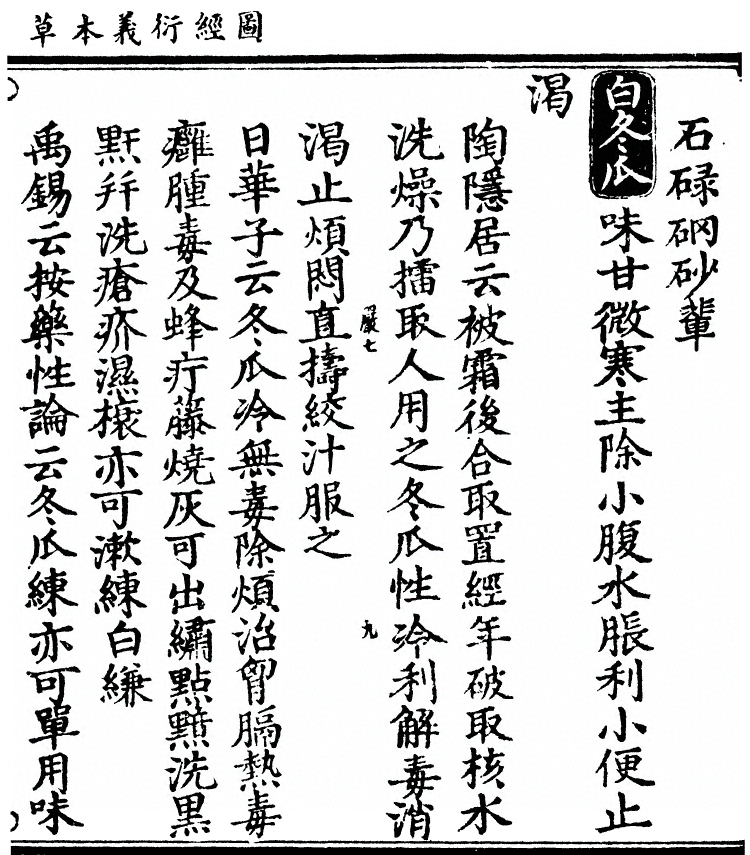 圖經衍義本草
石碌硇砂輩
白冬瓜 味甘微寒主除小腹水脹利小便止
渴
陶隱居云被霜後合取置經年破取核水
洗燥乃擂取人用之冬瓜性冷利解毒消
渴止煩悶直擣絞汁服之
日華子云冬瓜冷無毒除煩治胷膈熱毒
癰腫毒及蜂疔藤燒灰可出繡點黥洗黑
䵟并洗瘡疥濕橠亦可漱練白縑
禹錫云按藥性論云冬瓜練亦可單用味
七
九